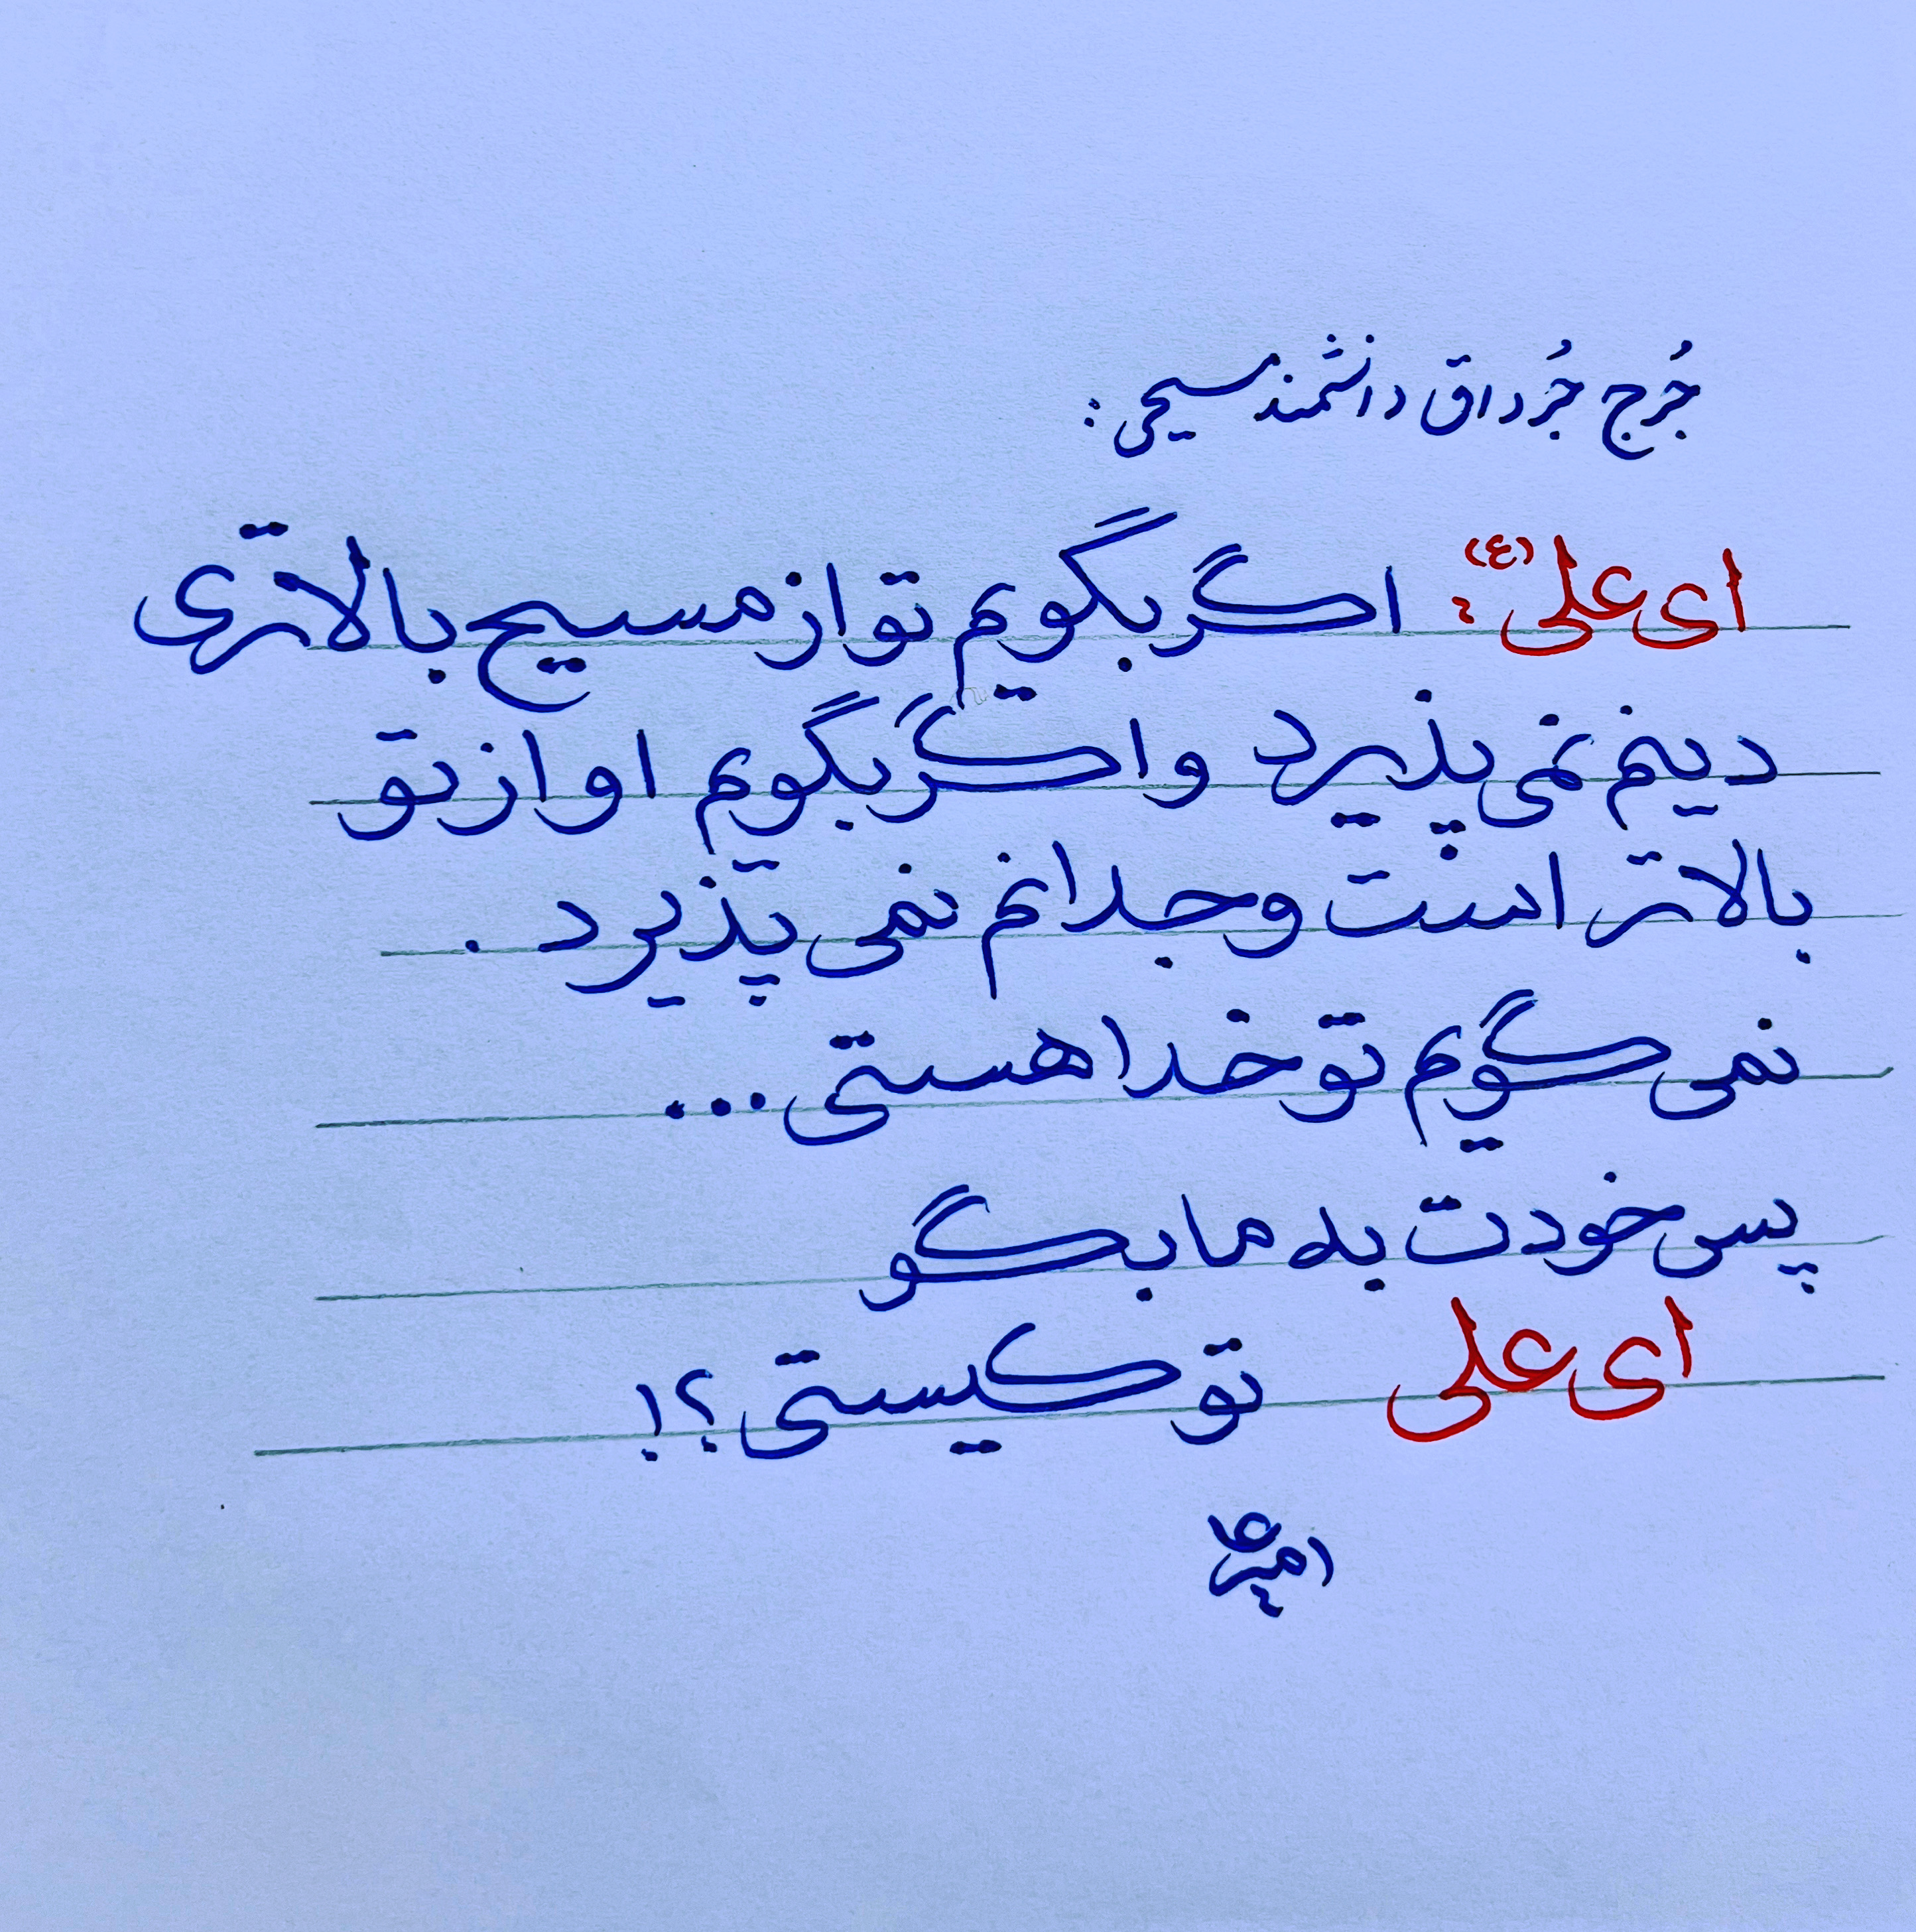 جُرج جُرداق دانشمند مسیحی:
ای علی(ع): اگر بگویم تو از مسیح بالاتری
دینم نمی پذیرد و اگر بگویم او از تو
بالاتر است وجدانم نمی پذیرد.
نمی گویم تو خدا هستی...
پس خودت به ما بگو
ای علی تو کیستی؟!